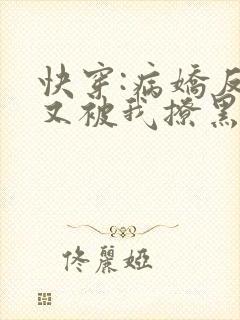 快穿:病嬌反
又被我撩黑
佟麗婭